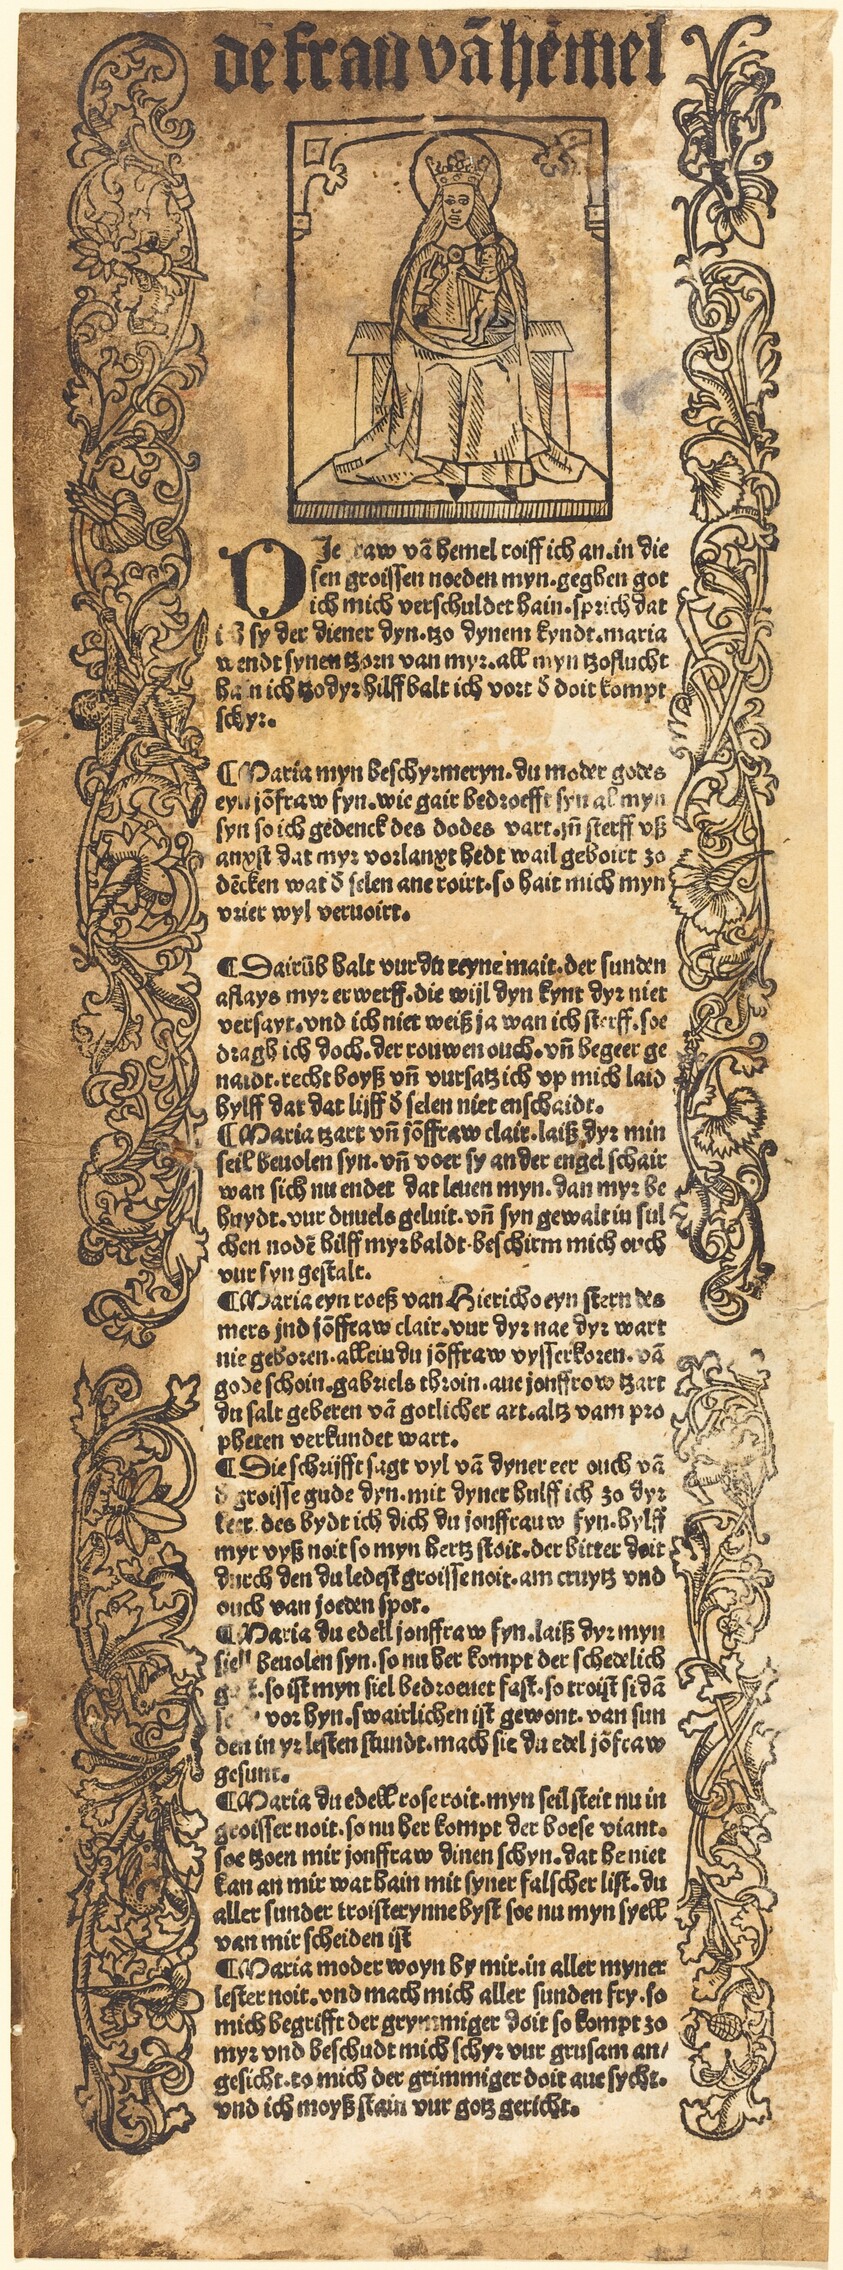 dē frau vā hēmel
DJe raw vā hemel roiff ich an.in die
sen groissen noeden myn.gegben got
ich mich verschuldet hain.sprich dat
sy der diener dyn.tzo dynem kyndt.maria
wendt synen tzorn van myr.all myn tzoflucht
hain ich tzo dyr hilff balt ich vort d̄ doit kompt
schyr.
¶Maria myn beschyrmeryn.du moder godes
eyn jōfraw fyn.wie gair bedroefft syn al myn
syn so ich gedenck des dodes vart.jn̄ sterff vß
anxst dat myr vorlanxt hedt wail geboirt zo
dēcken wat d̄ selen ane roirt.so hait mich myn
vrier wyl veruoirt.
¶Dairūb balt vur du reyne mait.der sunden
aflays myr erwerff.die wijl dyn kynt dyr niet
versayt.vnd ich niet weiß ja wan ich sterff.soe
dragh ich doch.der rouwen ouch.vn̄ begeer ge
naidt.recht boyß vn̄ vursatz ich vp mich laid
hylff dat dat lijff d̄ selen niet enschaidt.
¶Maria tzart vn̄ jōffraw clair.laiß dyr min
seil beuolen syn.vn̄ voer sy an der engel schair
wan sich nu endet dat leuen myn.dan myr be
huydt.vur duuels geluit.vn̄ syn gewalt in sul
chen nodē hilff myr baldt.beschirm mich ouch
vur syn gestalt.
¶Maria eyn roeß van Hiericho eyn stern des
mers jnd jōffraw clair.vur dyr nae dyr wart
nie geboren.allein du jōffraw vysserkoren.vā
gode schoin.gabriels throin.aue jonffrow tzart
du salt geberen vā gotlicher art.altz vam pro
pheten verkundet wart.
¶Die schrijfft sagt vyl vā dyner eer ouch vā
d̄ groisse gude dyn.mit dyner hulff ich zo dyr
keer.des bydt ich dich du jonffrauw fyn.hylff
myr vyß noit so myn hertz stoit.der bitter doit
durch den du ledest groisse noit.am cruytz vnd
ouch van joeden spot.
¶Maria du edell jonffraw fyn.laiß dyr myn
siell beuolen syn.so nu her kompt der schedelich
so ist myn siel bedroeuet fast.so troist si dā
vor hyn.swairlichen ist gewont.van sun
den in yr lesten stundt.mach sie du edel jōfraw
gesunt.
¶Maria du edell rose roit.myn seil steit nu in
groisser noit.so nu her kompt der boese viant.
soe tzoen mir jonffraw dinen schyn.dat he niet
kan an mir wat hain mit syner falscher list.du
aller sunder troisterynne byst soe nu myn syell
van mir scheiden ist
¶Maria moder woyn by mir.in aller myner
lester noit.vnd mach mich aller sunden fry.so
mich begrifft der grymmiger doit so kompt zo
myr vnd beschudt mich schyr vur grusam an/
gesicht.to mich der grimmiger doit aue sycht.
vnd ich moyß stain vur gotz gericht.